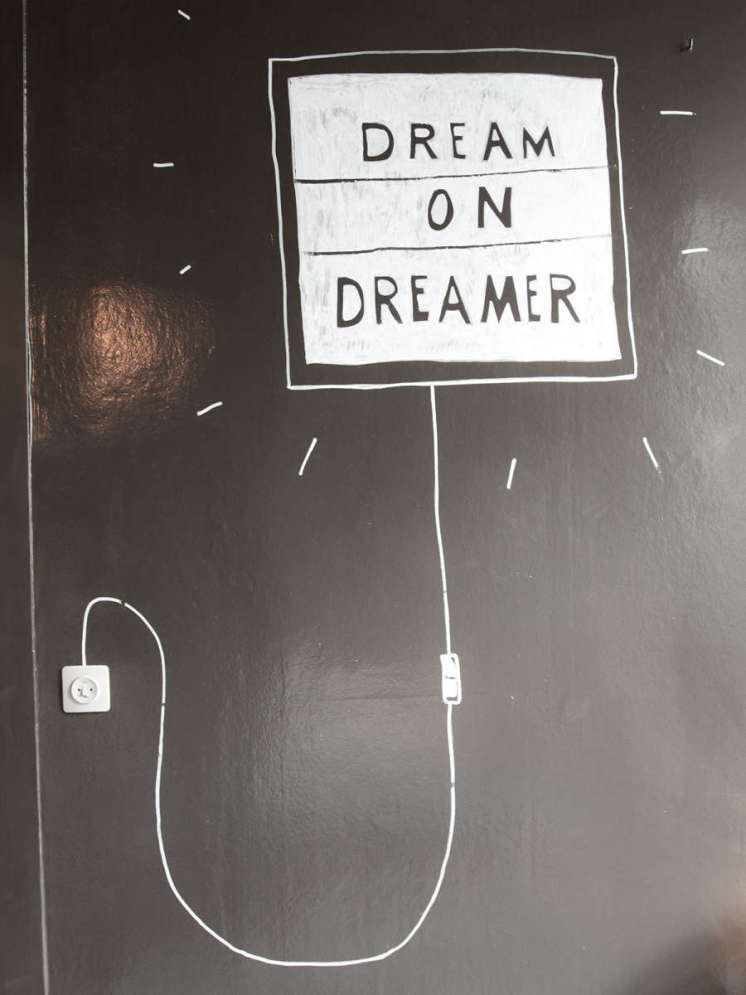 DREAM
ON
DREAMER